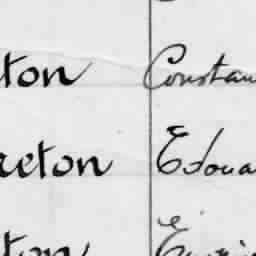 ton Constan
reton Edoua
ton